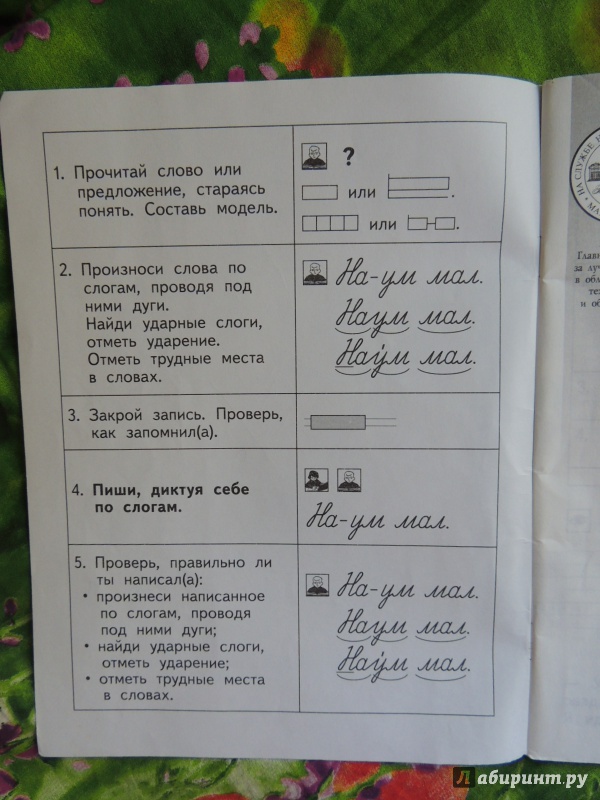 1. Прочитай слово или
предложение, стараясь
понять. Составь модель.
?
или .
или .
2. Произноси слова по
слогам, проводя под
ними дуги.
Найди ударные слоги,
отметь ударение.
Отметь трудные места
в словах.
На-ум мал.
Наум мал.
Нау́м мал.
3. Закрой запись. Проверь,
как запомнил(а).
4. Пиши, диктуя себе
по слогам.
На-ум мал.
5. Проверь, правильно ли
ты написал(а):
• произнеси написанное
по слогам, проводя
под ними дуги;
• найди ударные слоги,
отметь ударение;
• отметь трудные места
в словах.
На-ум мал.
Наум мал.
Нау́м мал.
НА СЛУЖБЕ
Главн
за луч
в обл
тех
и об
Лабиринт.ру